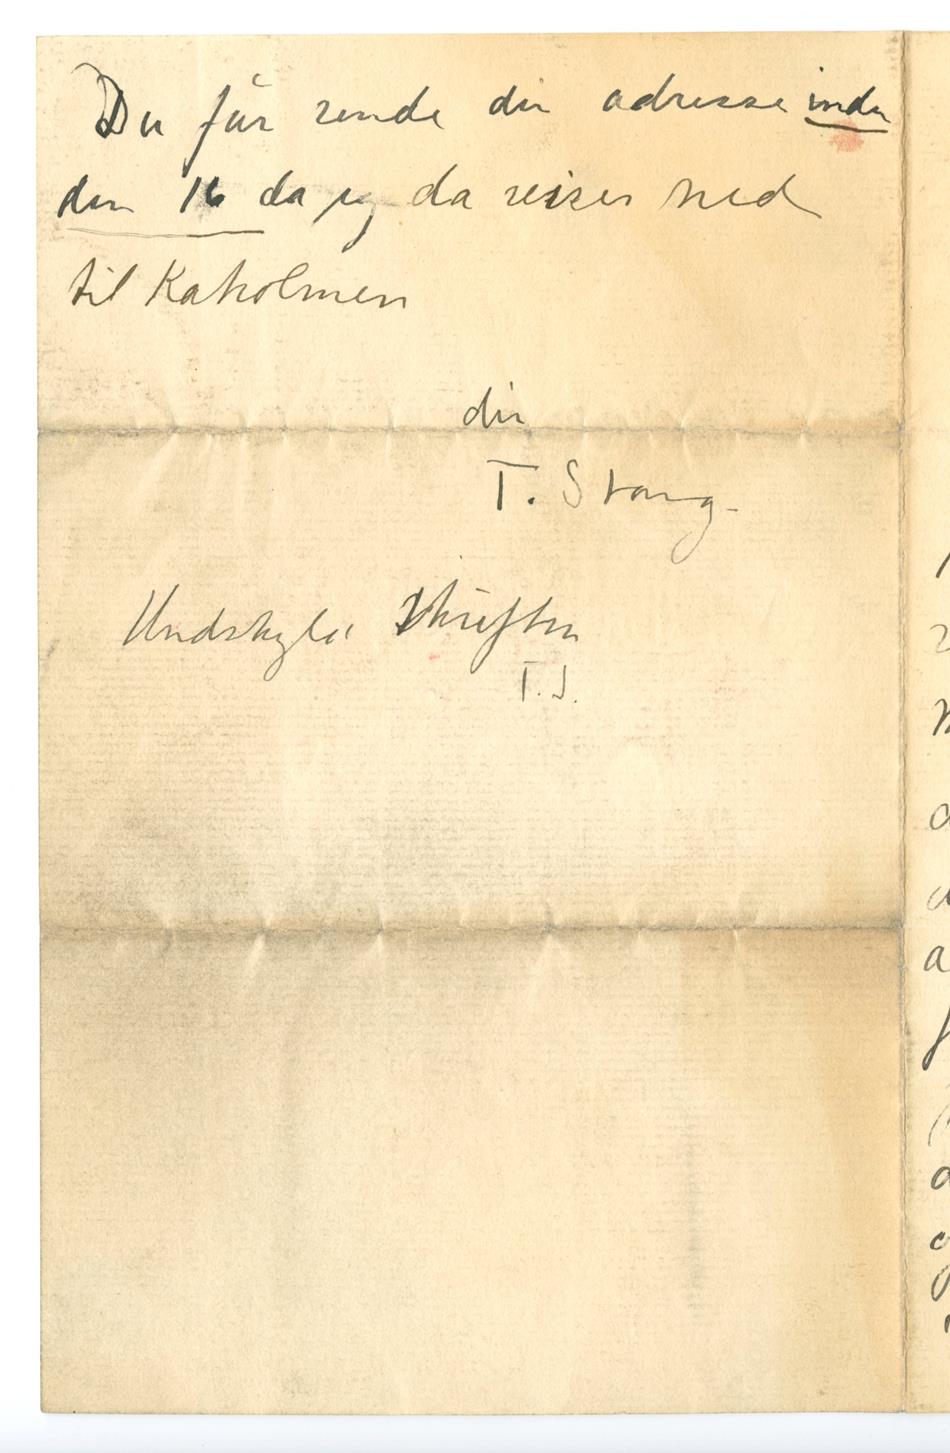 Du får sende din adresse inden
den 16 da jeg da reiser ned
til Kaholmen
din
T. Stang.
Undskyld skriften
T.S.